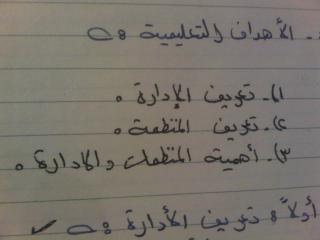 - الأهداف التعليمية :-
١)- تعريف الإدارة .
٢)- تعريف المنظمة .
٣)- أهمية المنظمات والادارة .
أولاً : تعريف الأدارة :- ✓